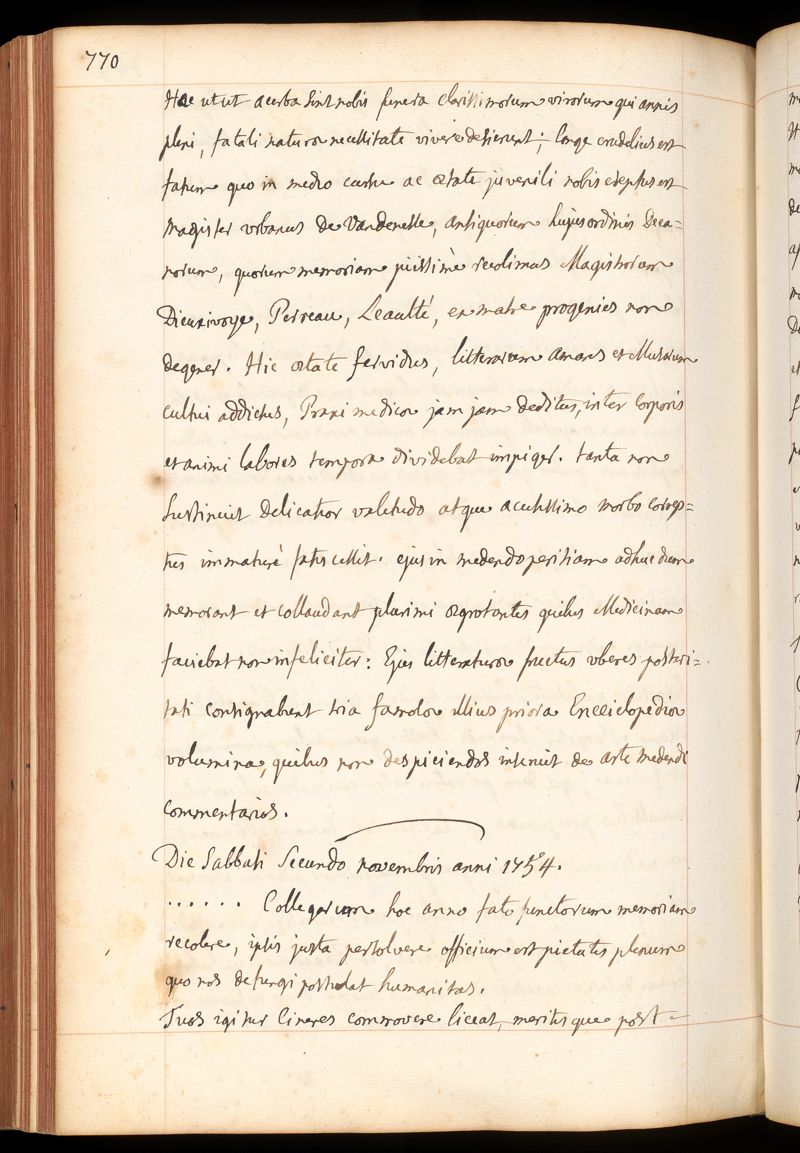 770
Hae ut ut acerba sint nobis funera clarissimorum virorum qui annis
pleni, fatali naturæ necessitate vivere desierunt; longe crudelius est
fatum quo in medio cursu ac ætate juvenili nobis ereptus est
Magister urbanus De Vandenesse, antiquorum hujus ordinis Deca=
norum, quorum memoriam piissimè recolimus Magistrorum
Dieuxivoye, Perreau, Leaulté, ex matre progenies non
degener. Hic ætate fervidus, litterarum amans et Musarum
cultui addictus, Praxi medicæ jam jam deditus, inter Corporis
et animi labores tempora dividebat impiger. tanta non
Sustinuit delicatior valetudo atque acutissimo morbo correp=
tus immaturè fatis cessit. ejus in medendo peritiam adhuc dum
memorant et collaudant plurimi ægrotantes quibus Medicinam
faciebat non infeliciter: Ejus litteraturæ fructus uberes posteri=
tati consignabunt tria famosæ illius priora Encciclopediæ
volumina, quibus non despiciendos inseruit de arte medendi
Commentarios.
Die Sabbati Secundo novembris anni 1754.
...... Collegarum hoc anno fato functorum memoriam
recolere, ipsis justa persolvere officium est pietatis plenum
quo nos defungi postulat humanitas.
Tuos igitur Cineres commovere liceat, meritisque post=